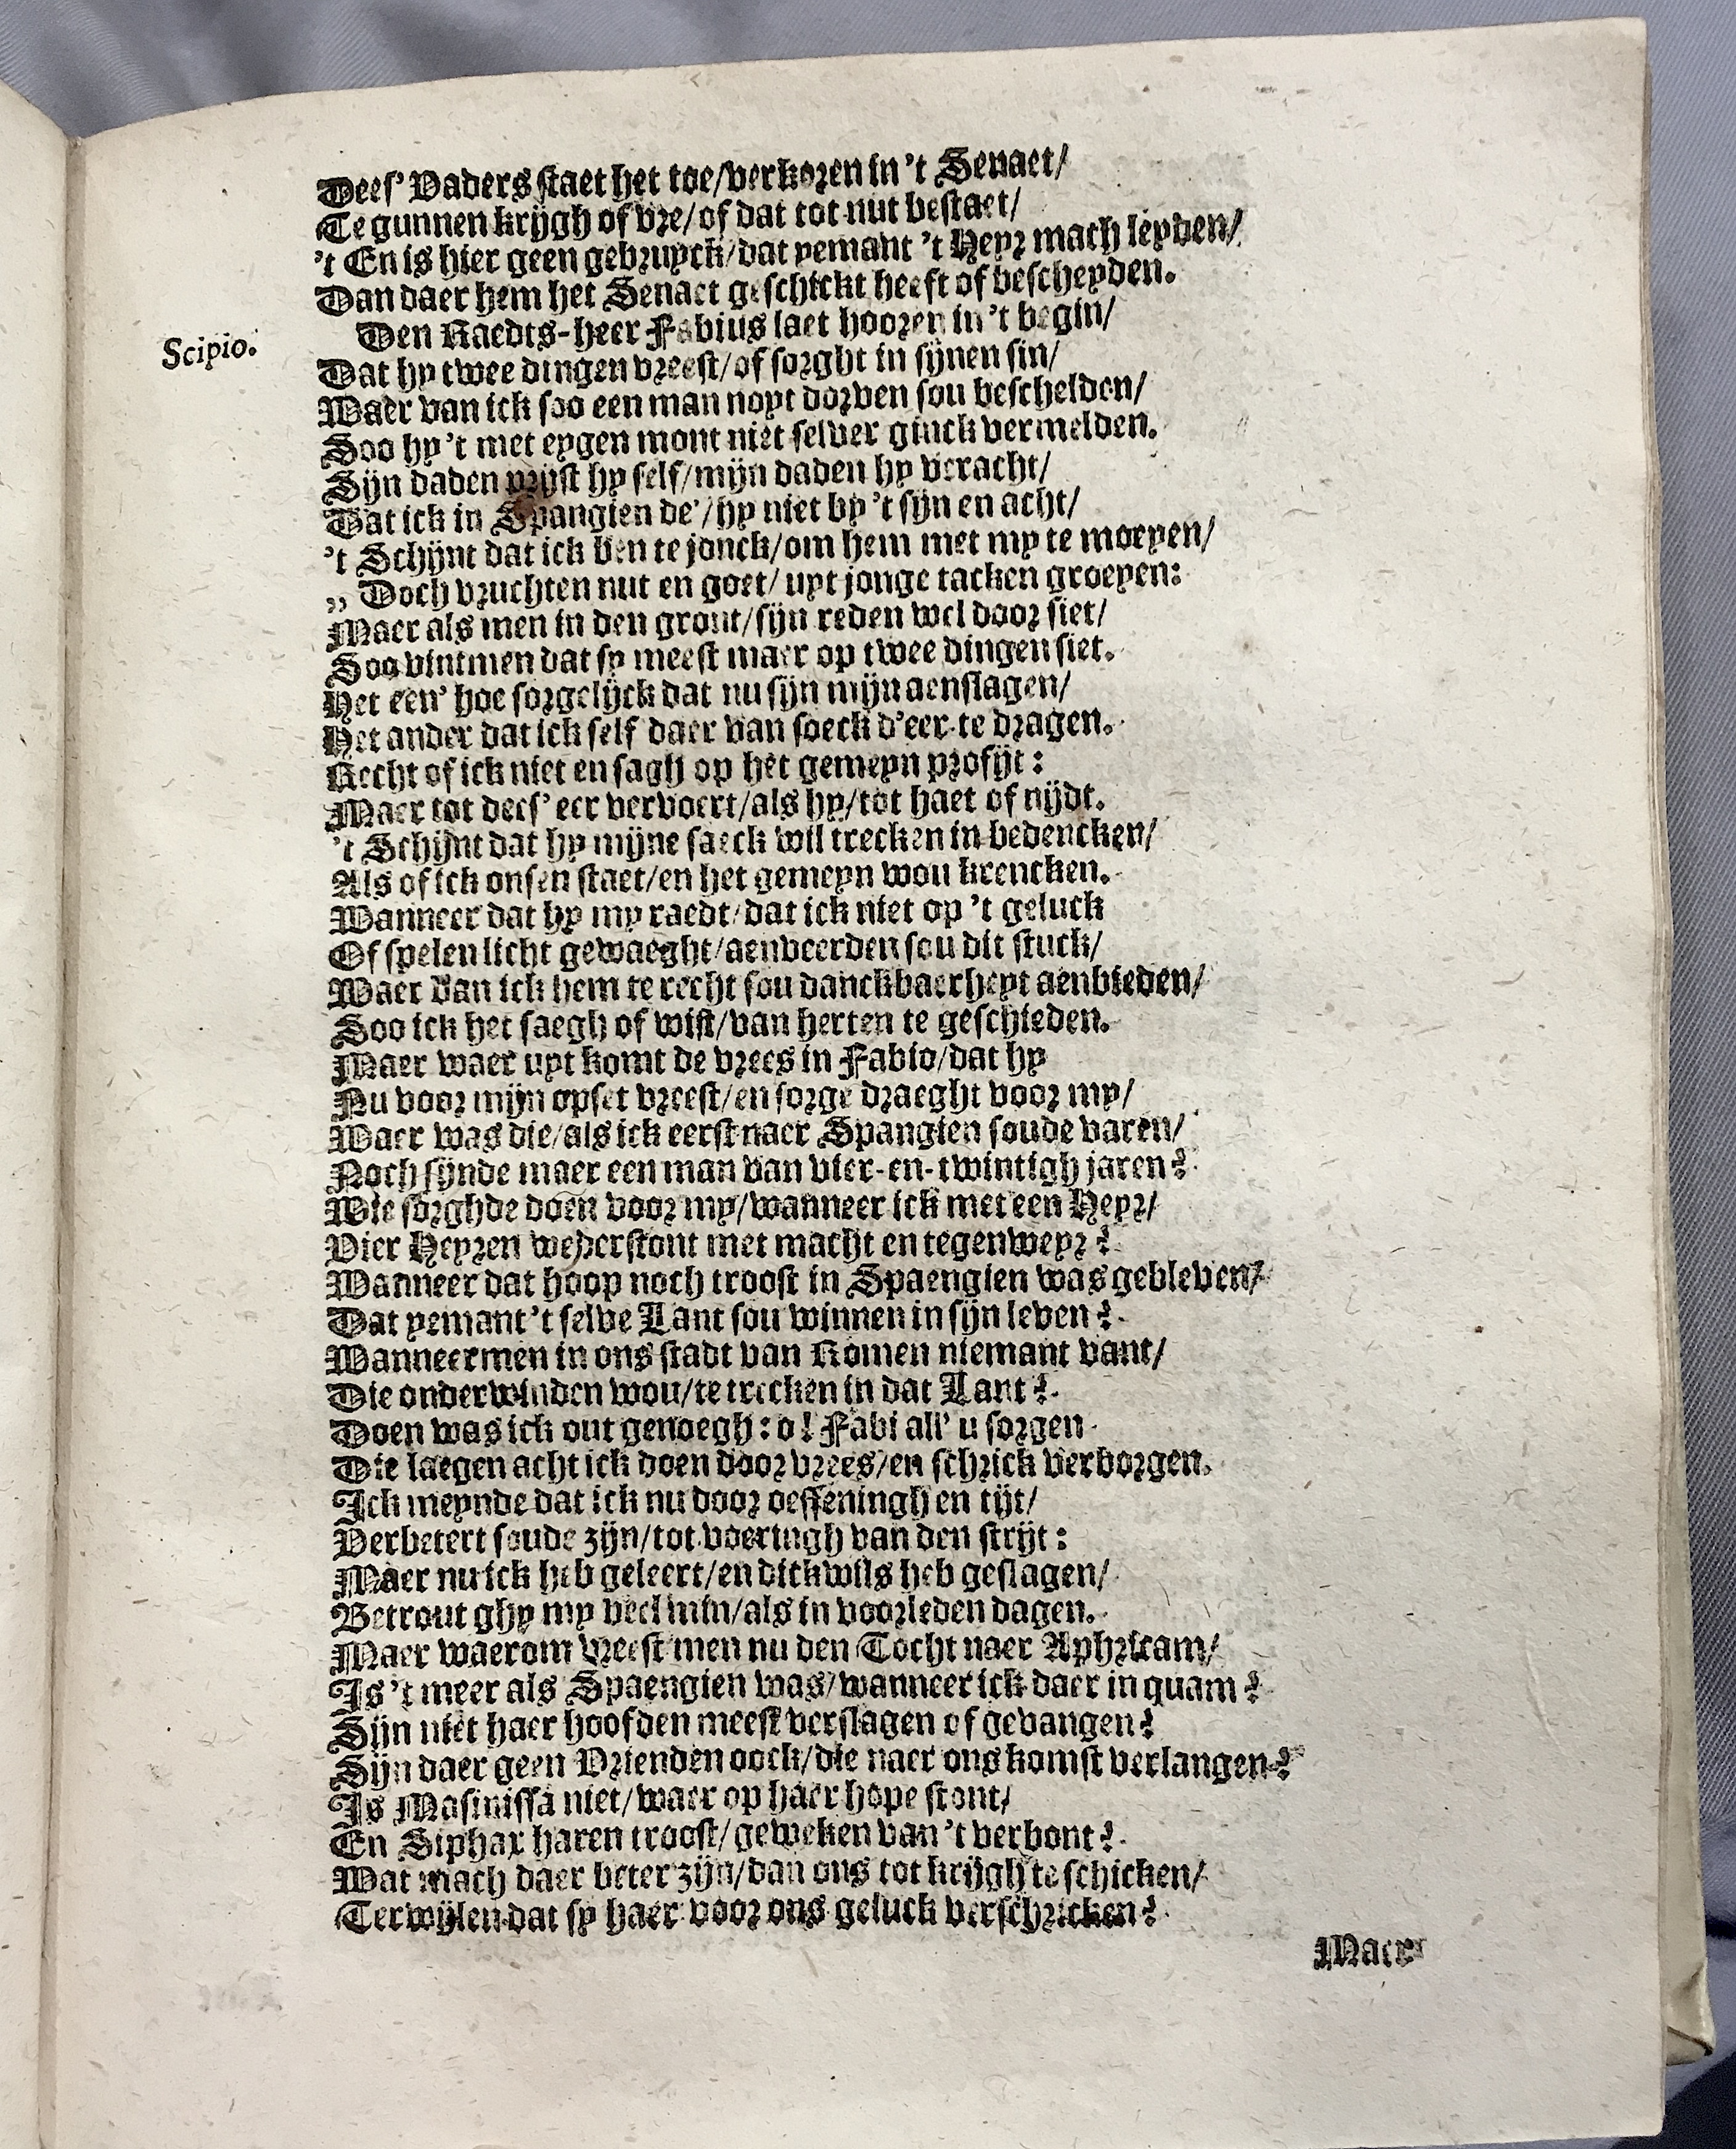 Dees' Vaders staet het toe/verkozen in 't Senaet/
Te gunnen krijgh of vre/of dat tot nut bestaet/
't En is hier geen gebruyck/dat yemant 't Heyr mach leyden/
Dan daer hem het Senaet geschickt heeft of bescheyden.
Scipio.
Den Raedts-heer Fabius laet hooren in 't begin/
Dat hy twee dingen vreest/of sorght in sijnen sin/
Waer van ick soo een man noyt dorven sou beschelden/
Soo hy 't met eygen mont niet selver ginck vermelden.
Sijn daden prijst hy self/mijn daden hy veracht/
Dat ick in Spangien de'/hy niet by 't sijn en acht/
't Schijnt dat ick ben te jonck/om hem met my te moeyen/
„ Doch vruchten nut en goet/uyt jonge tacken groeyen:
Maer als men in den gront/sijn reden wel door siet/
Soo vintmen dat sy meest maer op twee dingen siet.
Het een' hoe sorgelijck dat nu sijn mijn aenslagen/
Het ander dat ick self daer van soeck d'eer te dragen.
Recht of ick niet en sagh op het gemeyn profijt:
Maer tot dees' eer vervoert/als hy/tot haet of nijdt.
't Schijnt dat hy mijne saeck wil trecken in bedencken/
Als of ick onsen staet/en het gemeyn wou krencken.
Wanneer dat hy my raedt/dat ick niet op 't geluck
Of spelen licht gewaeght/aenveerden sou dit stuck/
Waer van ick hem te recht sou danckbaerheyt aenbieden/
Soo ick het saegh of wist/van herten te geschieden.
Maer waer uyt komt de vrees in Fabio/dat hy
Nu voor mijn opset vreest/en sorge draeght voor my/
Waer was die/als ick eerst naer Spangien soude varen/
Noch sijnde maer een man van vier-en-twintigh jaren?
Wie sorghde doen voor my/wanneer ick met een Heyr/
Vier Heyren wederstont met macht en tegenweyr?
Wanneer dat hoop noch troost in Spaengien was gebleven/
Dat yemant 't selve Lant sou winnen in sijn leven?
Wanneermen in ons stadt van Romen niemant vant/
Die onderwinden wou/te trecken in dat Lant?
Doen was ick out genoegh: o! Fabi all' u sorgen
Die laegen acht ick doen door vrees/en schrick verborgen.
Ick meynde dat ick nu door oeffeningh en tijt/
Verbetert soude zijn/tot voeringh van den strijt:
Maer nu ick heb geleert/en dickwils heb geslagen/
Betrout ghy my veel min/als in voorleden dagen.
Maer waerom vreest men nu den Tocht naer Aphricam/
Is 't meer als Spaengien was/wanneer ick daer in quam?
Sijn niet haer hoofden meest verslagen of gevangen?
Sijn daer geen Vrienden oock/die naer ons komst verlangen?
Is Masinissa niet/waer op haer hope stont/
En Siphax haren troost/geweken van 't verbont?
Wat mach daer beter zijn/dan ons tot krijgh te schicken/
Terwijlen dat sy haer voor ons geluck verschricken?
Maer